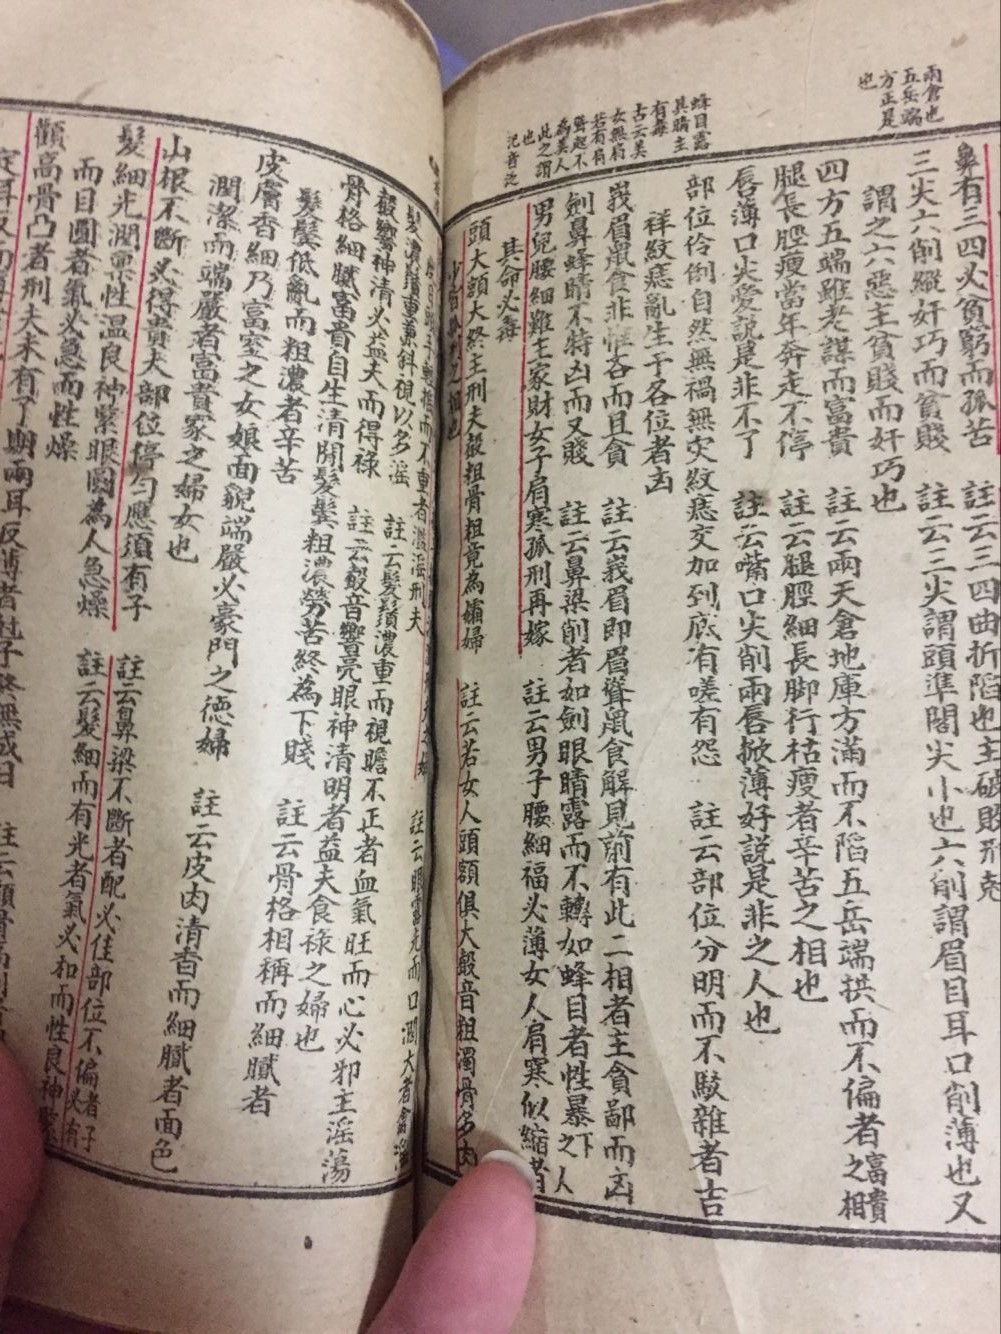 兩倉也
五岳端
方正是
也
蜂目露
其睛主
有毒
古云美
女無肩
若有肩
聳起不
為美人
此之謂
也
記音之
鼻有三四必貧窮而孤苦　註云三四曲折陷也主破財刑克
三尖六削縱奸巧而貧賤　註云三尖謂頭準閣尖小也六削謂眉目耳口削薄也又
謂之六惡主貧賤而奸巧也
四方五端雖老謀而富貴　註云兩天倉地庫方滿而不陷五岳端拱而不偏者富貴之相
腿長脛瘦當年奔走不停　註云腿脛細長脚行枯瘦者辛苦之相也
唇薄口尖愛說是非不了　註云嘴口尖削兩唇掀薄好說是非之人也
部位伶俐自然無禍無灾紋痣交加到底有嗟有怨　註云部位分明而不駁雜者吉
祥紋痣亂生于各位者凶
峩眉鼠食非惟吝而且貪　註云峩眉即眉聳鼠食解見前有此二相者主貪鄙而凶
劍鼻蜂睛不特凶而又賤　註云鼻梁削者如劍眼睛露而不轉如蜂目者性暴下之人
男兒腰細難主家財女子肩寒孤刑再嫁　註云男子腰細福必薄女人肩寒似縮者
其命必毒
頭大額大終主刑夫殺粗骨粗竟為孀婦　註云若女人頭額俱大殺音粗濁骨多肉
髮濃鬢重兼斜視以多淫　註云髮鬚濃重而視瞻不正者血氣旺而心必邪主淫蕩
殺響神清必益夫而得祿　註云殺音響亮眼神清明者益夫食祿之婦也
骨格細膩富貴自生清閒髮鬢粗濃勞苦終為下賤　註云骨格相稱而細膩者
髮鬢低亂而粗濃者辛苦
皮膚香細乃富室之女娘面貌端嚴必豪門之德婦　註云皮肉清香而細膩者面色
潤潔而端嚴者富貴家之婦女也
山根不斷必得貴夫部位停勻應須有子　註云鼻梁不斷者配必佳部位不偏者子必有
髮細光潤稟性溫良神緊眼圓為人急燥　註云髮細而有光者氣必和而性良神緊
而目圓者氣必急而性燥
顴高骨凸者刑夫未有了期兩耳反薄者尅子終無成日　註云顴